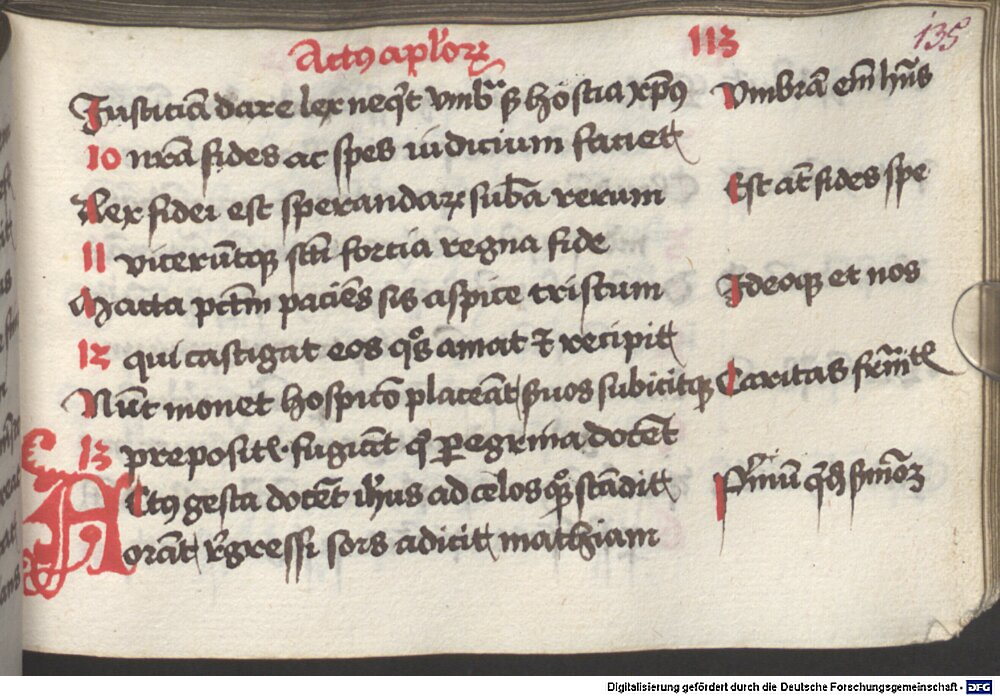 Actꝰ aplꝛoꝝ 113 135
Iusticiā dare lex neqͥt vmbͣ s hostia xpūs Vmbrā em̄ hn̄s
10 nr̄a fides ac spes iudicium faciet
Lex fidei est sperandaꝝ sub̄a rerum Est aūt fides spe
11 vicerūtqꝫ scī forcia regna fide
Macta pctm̄ paciēs sis aspice tristum Ideoqꝫ et nos
12 qui castigat eos qͦs amat et recipit
Nūc monet hospicō placeāt suos subicitqꝫ Caritas fr̄nit
13 prepositꝭ fugiāt qͦ peregrina docēt
Actꝰ gesta docēt ih̄us ad celos qꝫ scādit Pͥmū qͥdē smonē
orāt rͤgressi sors adicit mathiam
Digitalisierung gefördert durch die Deutsche Forschungsgemeinschaft - DFG